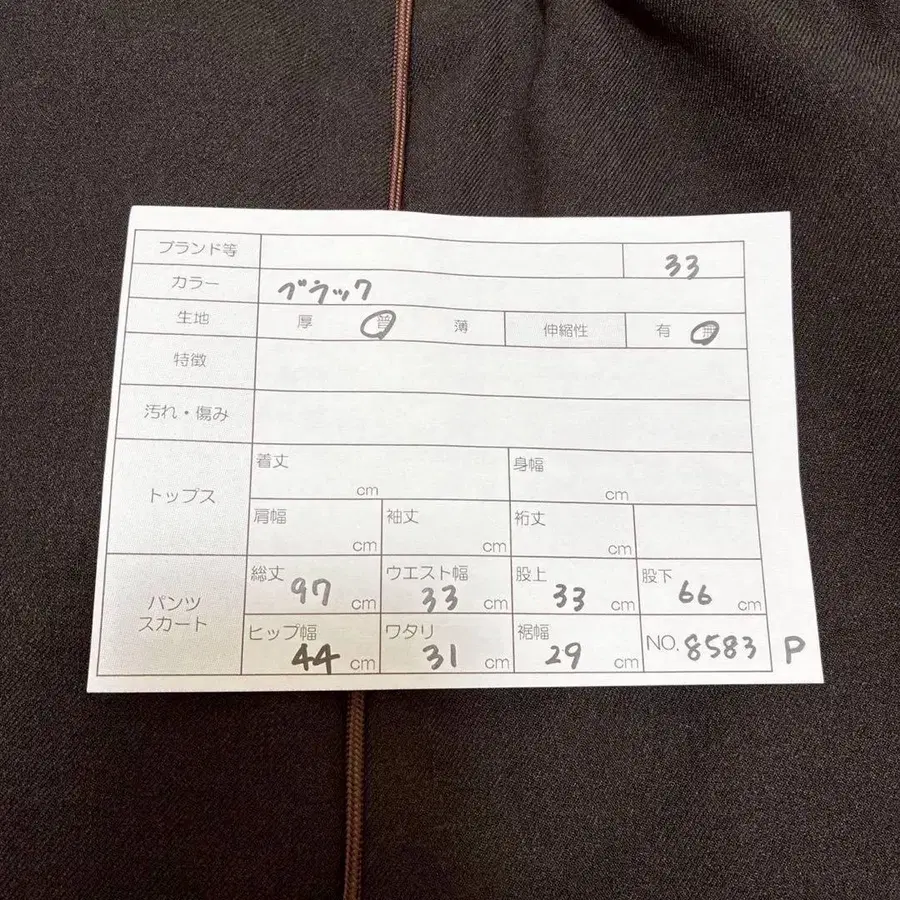 ブランド等 33
カラー ブラック
生地 厚 普 薄 伸縮性 有 無
特徴
汚れ・傷み
トップス
着丈 cm 身幅 cm
肩幅 cm 袖丈 cm 裄丈 cm
パンツ
スカート
総丈 97 cm ウエスト幅 33 cm 股上 33 cm 股下 66 cm
ヒップ幅 44 cm ワタリ 31 cm 裾幅 29 cm NO. 8583 P